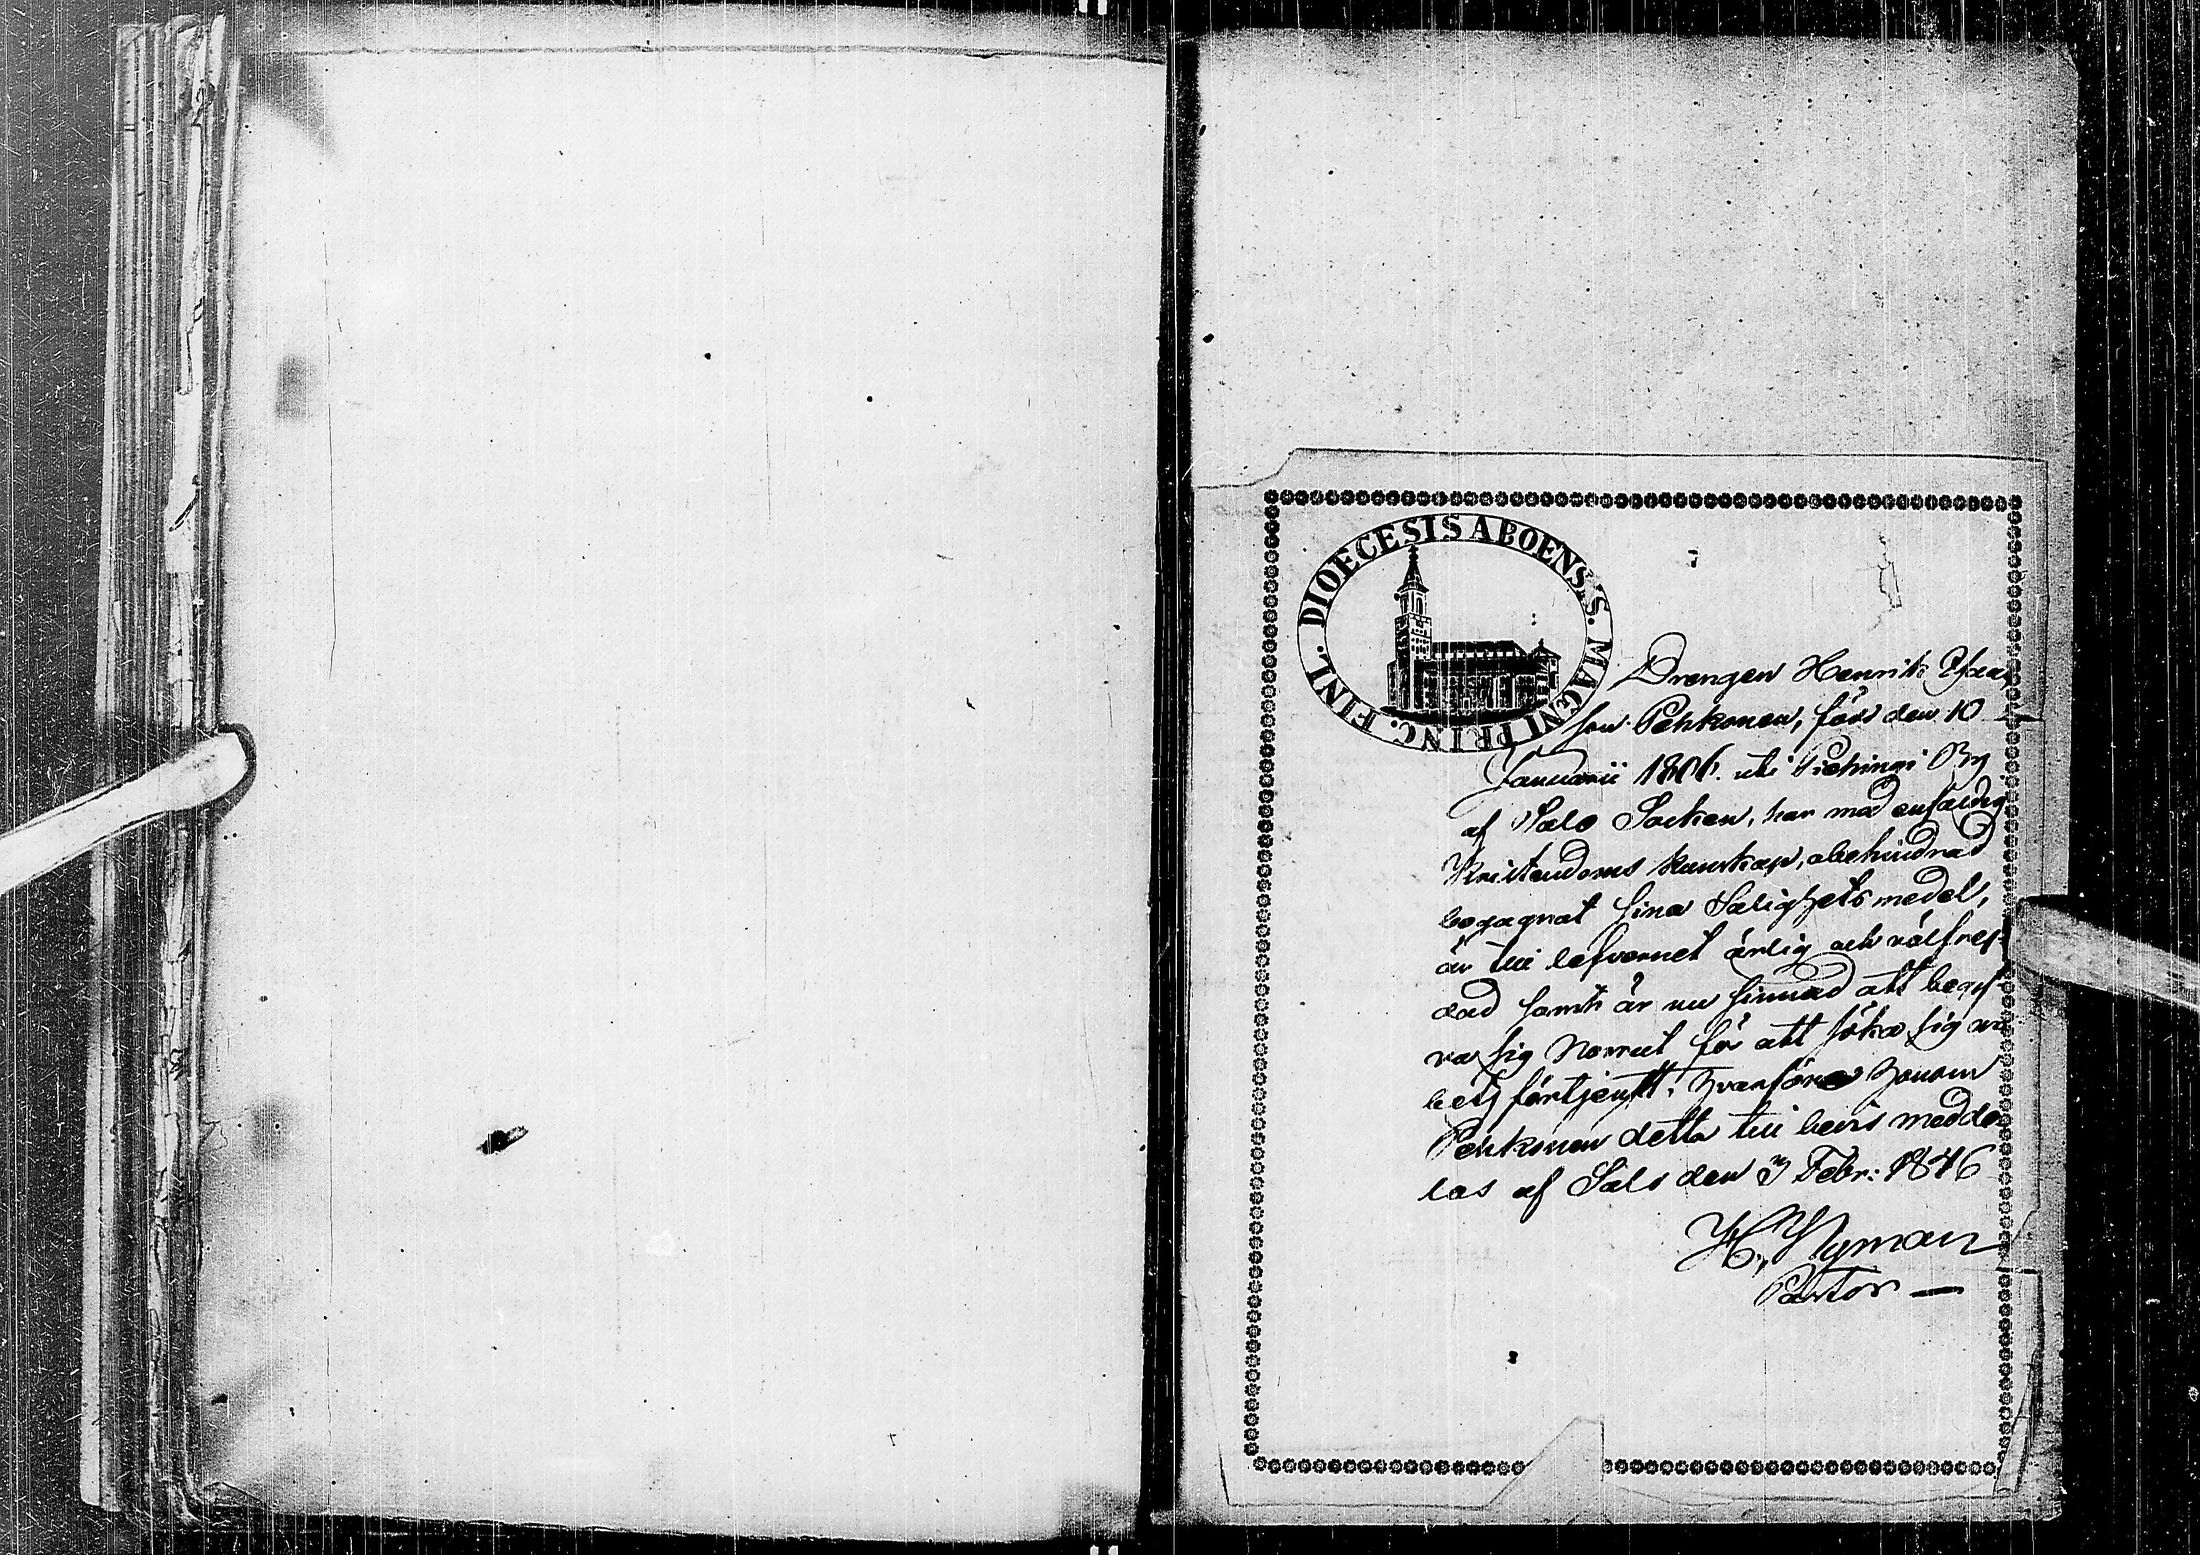 DIOECESIS ABOENSIS. MAGNI PRINC. FINL.
Drengen Henrik Isaaks
son Pehkonen, född den 10
Januarii 1806. uti Piehingi By
af Salo Socken, har med enfaldig
Kristendoms kunskap, obehindrad
begagnat sina Salighets medel,
är till lefvernet ärlig och välfrej-
dad samt är nu sinnad att begif-
va sig Norrut för att söka sig ar-
bets förtjenst; hvarföre honom
Pehkonen detta till bevis medde-
las af Salo den 3 Febr: 1846
H. Nyman
Pastor